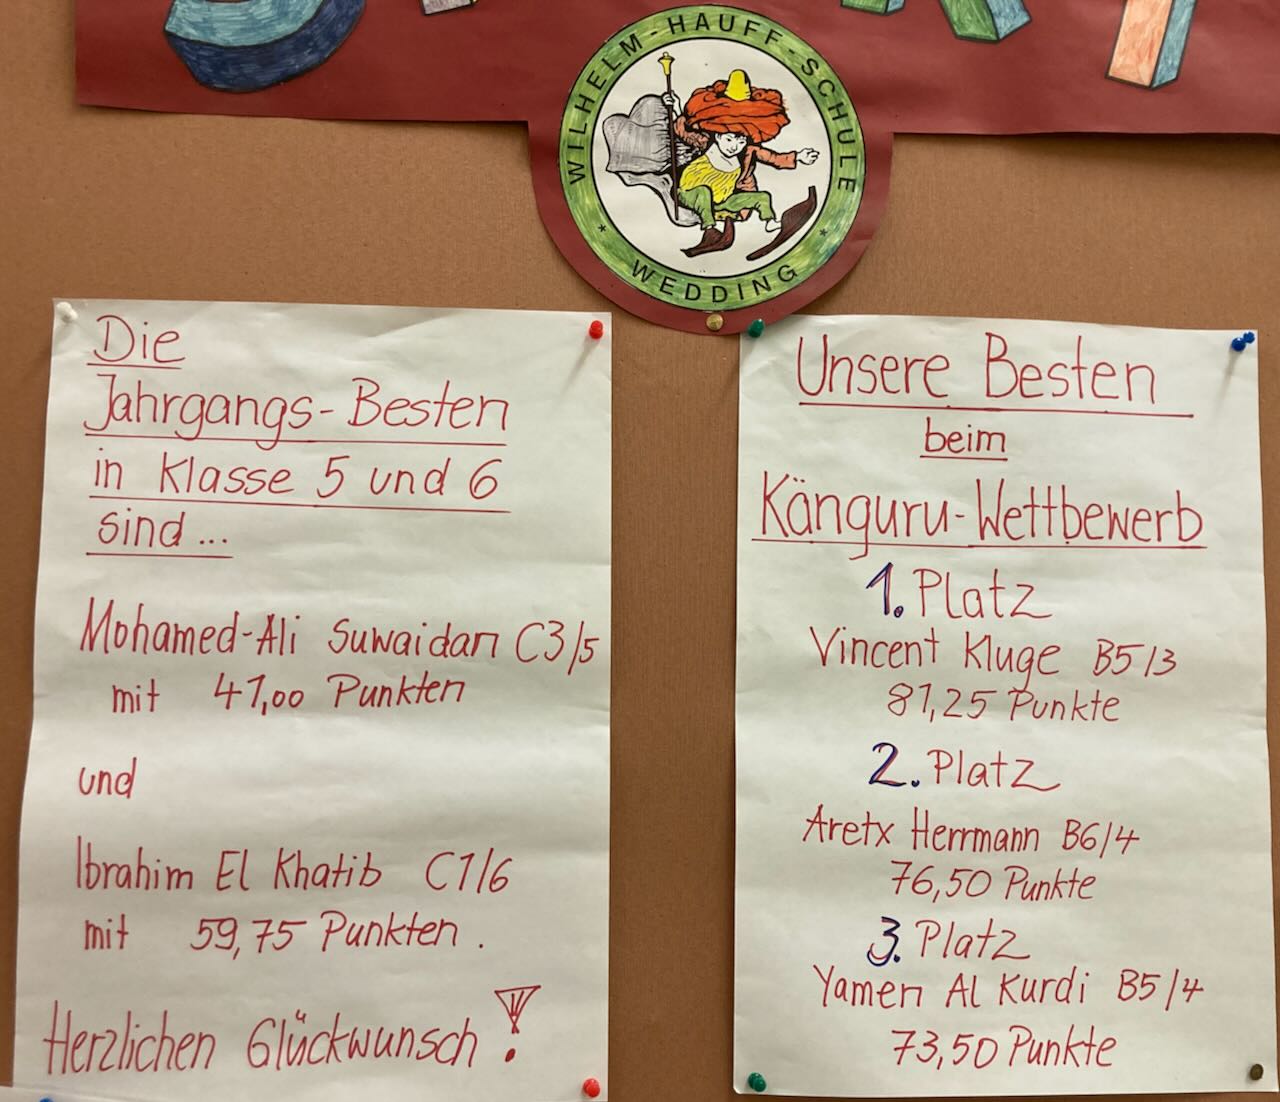 WILHELM-HAUFF-SCHULE
* WEDDING *
Die
Jahrgangs-Besten
in Klasse 5 und 6
sind...
Mohamed-Ali Suwaidan C3/5
mit 41,00 Punkten
und
Ibrahim El Khatib C1/6
mit 59,75 Punkten.
Herzlichen Glückwunsch!
Unsere Besten
beim
Känguru-Wettbewerb
1. Platz
Vincent Kluge B5/3
81,25 Punkte
2. Platz
Aretx Herrmann B6/4
76,50 Punkte
3. Platz
Yamen Al Kurdi B5/4
73,50 Punkte